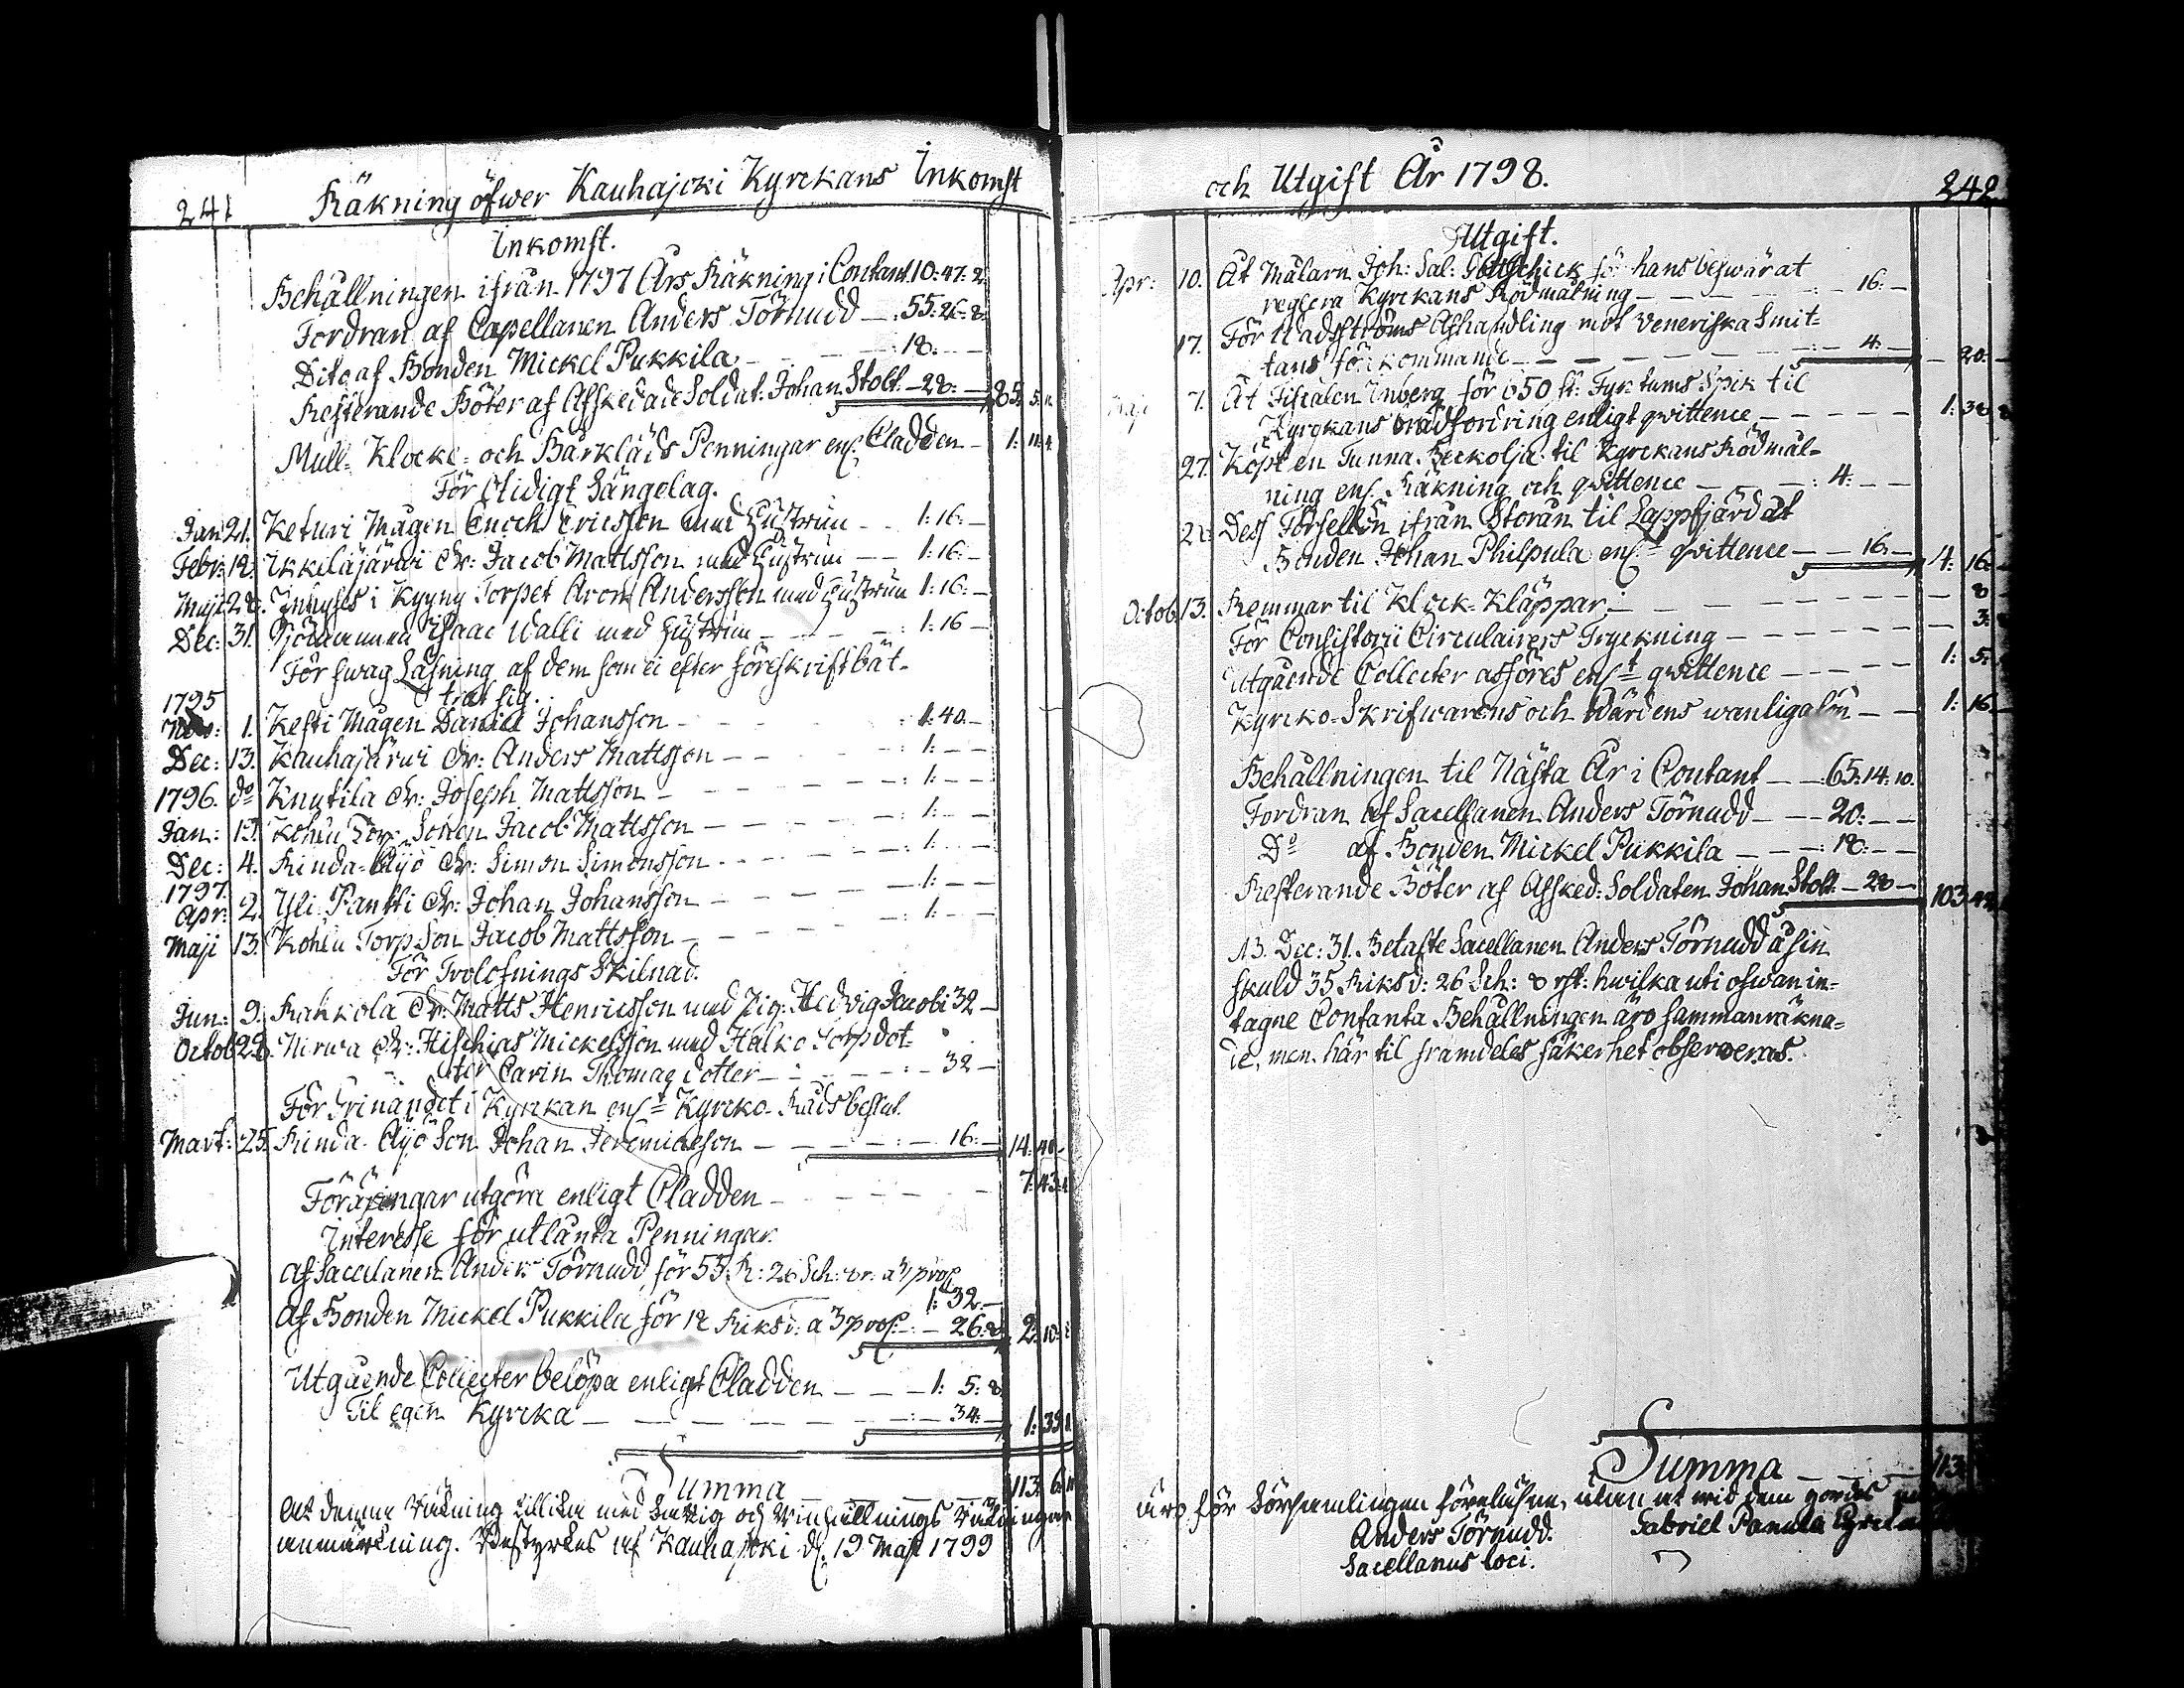 241 Räkning öfwer Kauhajoki Kyrckans Inkomst
Inkomst.
Behållningen ifrån 1797 Års Räkning i Contant 10: 47: 2
Fordran af Capellanen Anders Törnudd — 55: 26: 8.
Dito af Bonden Mickel Pukkila — 18: — —
Resterande Böter af Afskedade Soldat: Johan Stolt. — 28: — 85: 5: 10
Mull- Klocke- och Bårkläds Penningar enl. Cladden — 1: 11: 4
För Otidigt Sängelag.
Jan: 21. Keturi Mågen Enoch Ericsson med Hustrun — 1: 16: —
Febr: 12. Ikkeläjärwi Dr: Jacob Mattsson med Hustrun — 1: 16: —
Maji 28. Inhyses i Kyyny Torpet Aron Andersson med Hustrun 1: 16: —
Dec: 31. Isaac Walli med Hustrun — 1: 16 —
För swag Läsning af dem som ei efter föreskrift bät-
trat sig.
1795
1. Kesti Mågen Daniel Johansson — 1: 40. —
Dec: 13. Kauhajärwi Dr: Anders Mattsson — 1: — —
1796. do Knutila Dr: Joseph Mattsson — 1: — —
Jan: 13. Torp Sonen Jacob Mattsson — 1: — —
Dec: 4. Rinda-Äijö Dr: Simon Simonsson — 1: — —
1797.
Apr: 2. Yli Pantti Dr: Johan Johansson — 1: — —
Maji 13. Torp Son Jacob Mattsson — 1: — —
För Trolofnings Skilnad.
Jun: 9. Rahkola Dr: Matts Henricsson med Pig: Hedvig Jacobi 32 —
Octob 28. Hirwa Dr: Hischias Mickelsson med Halko Torpdot-
ter Carin Thomae dotter — 32 —
För Grinandet i Kyrckan enl:t Kyrcko-Råds beslut.
Mart: 25. Rinda-Äijö Son Johan Jeremiaeson — 16: — 14: 40 —
Föräringar utgöra enligt Cladden — 7: 43:
Interesse för utlånta Penningar.
Af Sacellanen Anders Törnudd för 55 R: 26 Sch: 8 r: a 3 proC
1: 32 —
Af Bonden Mickel Pukkila för 18 Riksd: a 3 proC: — 26: 8. 2: 10: 8
Utgående Collecter belöpa enligt Cladden — 1: 5: 8
Til egen Kyrcka — 34: — 1: 39:
Summa 113: 6:
At denna Räkning tillika med Fattig och Räkningar
anmärkning. Bestyrkes af Kauhajoki d. 19 Maji 1799
och Utgift År 1798. 242
Utgift.
Apr: 10. Åt Målarn Joh: Sal: Gottschick för hans beswär at
reglera Kyrckans Rödmålning — 16: —
17. För Hadströms Afhandling mot Veneriska Smit-
tans förekommande — 4: — 20: —
7. Åt Fiscalen Inberg för 650 st: Fyrtums Spik til
Kyrckans brädfordring enligt qvittence — 1: 38: 8
27. Köpt en Tunna Beckolja til Kyrckans Rödmål-
ning enl. Räkning och qvittence — 4: — —
Dess Forsellön ifrån Storån til Lappfjärd åt
Bonden Johan Philpula enl:t qvittence — 16: — 4: 16: —
Octob 13. Remmar til Klock-Kläppar — 8 —
För Consistorii Circulairers Tryckning — 3:
Utgående Collecter afföres enl:t qvittence — 1: 5:
Kyrcko-Skrifwarens och Wärdens wanliga lön — 1: 16
Behållningen til Nästa År i Contant — 65: 14: 10.
Fordran af Sacellanen Anders Törnudd — 20: — —
Do af Bonden Mickel Pukkila — 18: — —
Resterande Böter af Afsked: Soldaten Johan Stolt — 28 — 103:
NB. Dec: 31. Betalte Sacellanen Anders Törnudd å sin
skuld 35 Riksd: 26 Sch: 8 rst: hwilka uti ofwanin-
tagne Contanta Behållningen äro sammanräkna-
de, men här til framdeles säkerhet observeras.
Summa — 113
äro för Församlingen föreläsne, utan at wid dem gordes
Anders Törnudd. Gabriel Panula
Sacellanus loci.